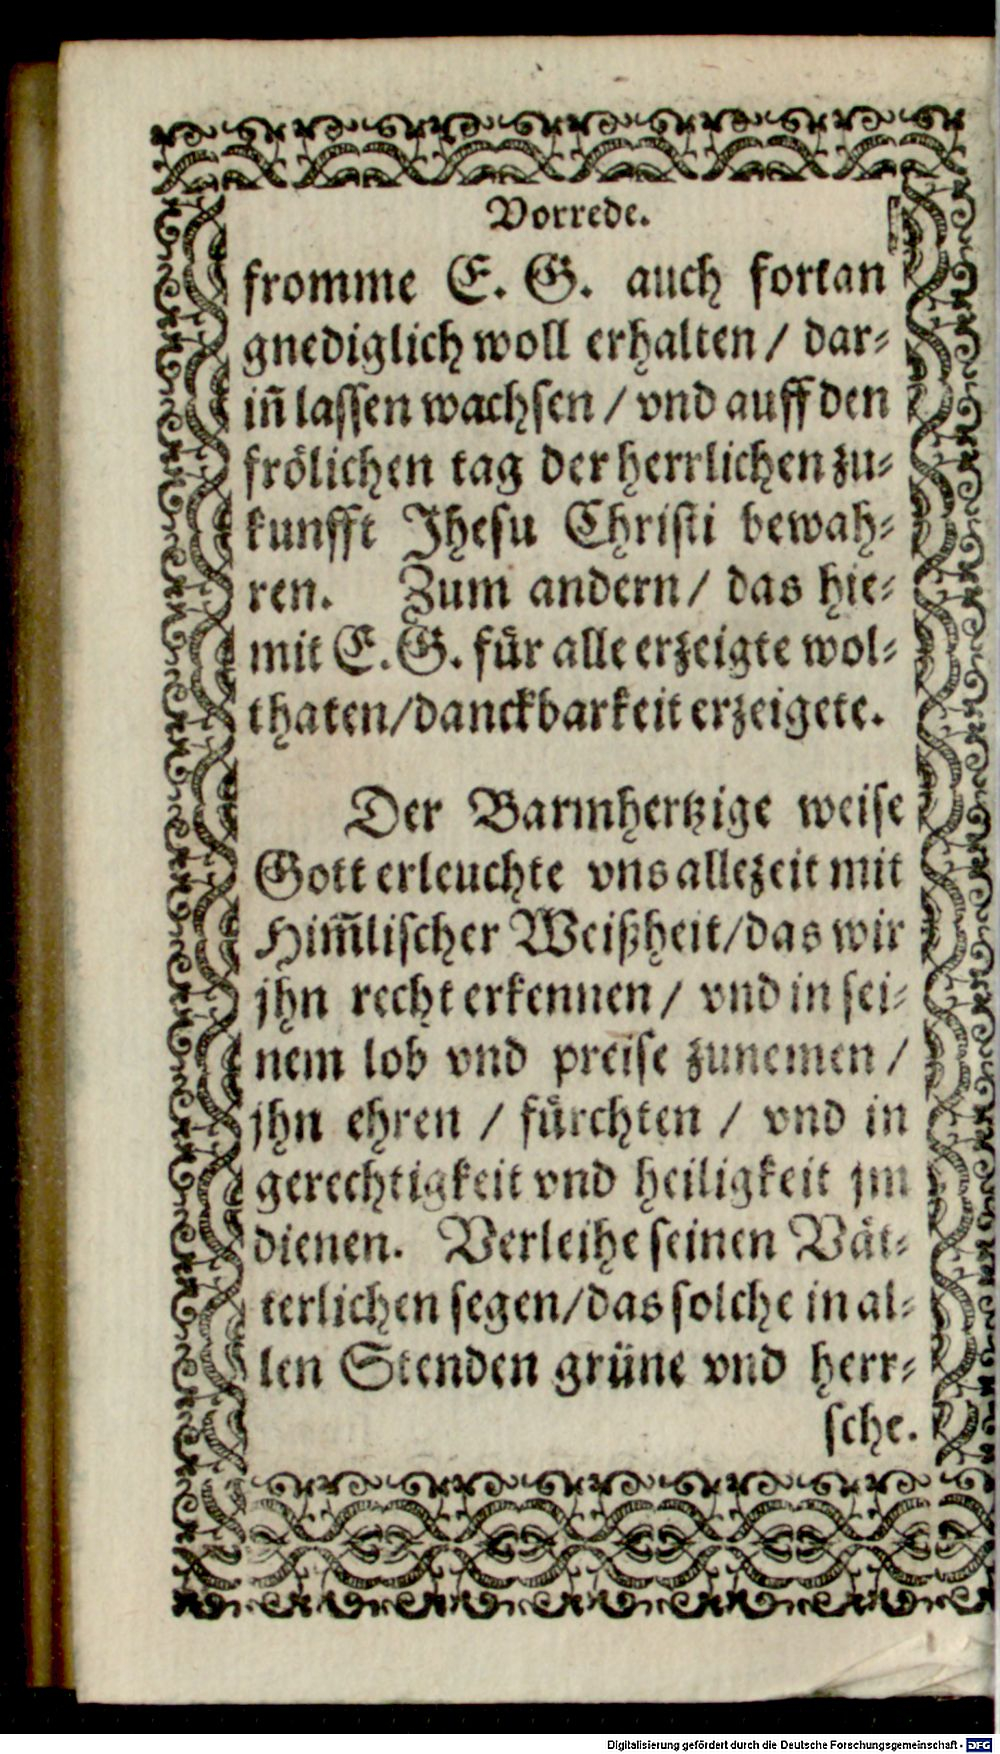 Vorrede.
fromme E. G. auch fortan
gnediglich woll erhalten / dar⸗
iñ lassen wachsen / vnd auff den
frölichen tag der herrlichen zu⸗
kunfft Jhesu Christi bewah⸗
ren. Zum andern / das hie⸗
mit E. G. für alle erzeigte wol⸗
thaten/danckbarkeit erzeigete.
Der Barmhertzige weise
Gott erleuchte vns allezeit mit
Him̃lischer Weißheit/das wir
jhn recht erkennen / vnd in sei⸗
nem lob vnd preise zunemen /
jhn ehren / fürchten / vnd in
gerechtigkeit vnd heiligkeit jm
dienen. Verleihe seinen Vät⸗
terlichen segen/das solche in al⸗
len Stenden grüne vnd herr⸗
sche.
Digitalisierung gefördert durch die Deutsche Forschungsgemeinschaft - DFG